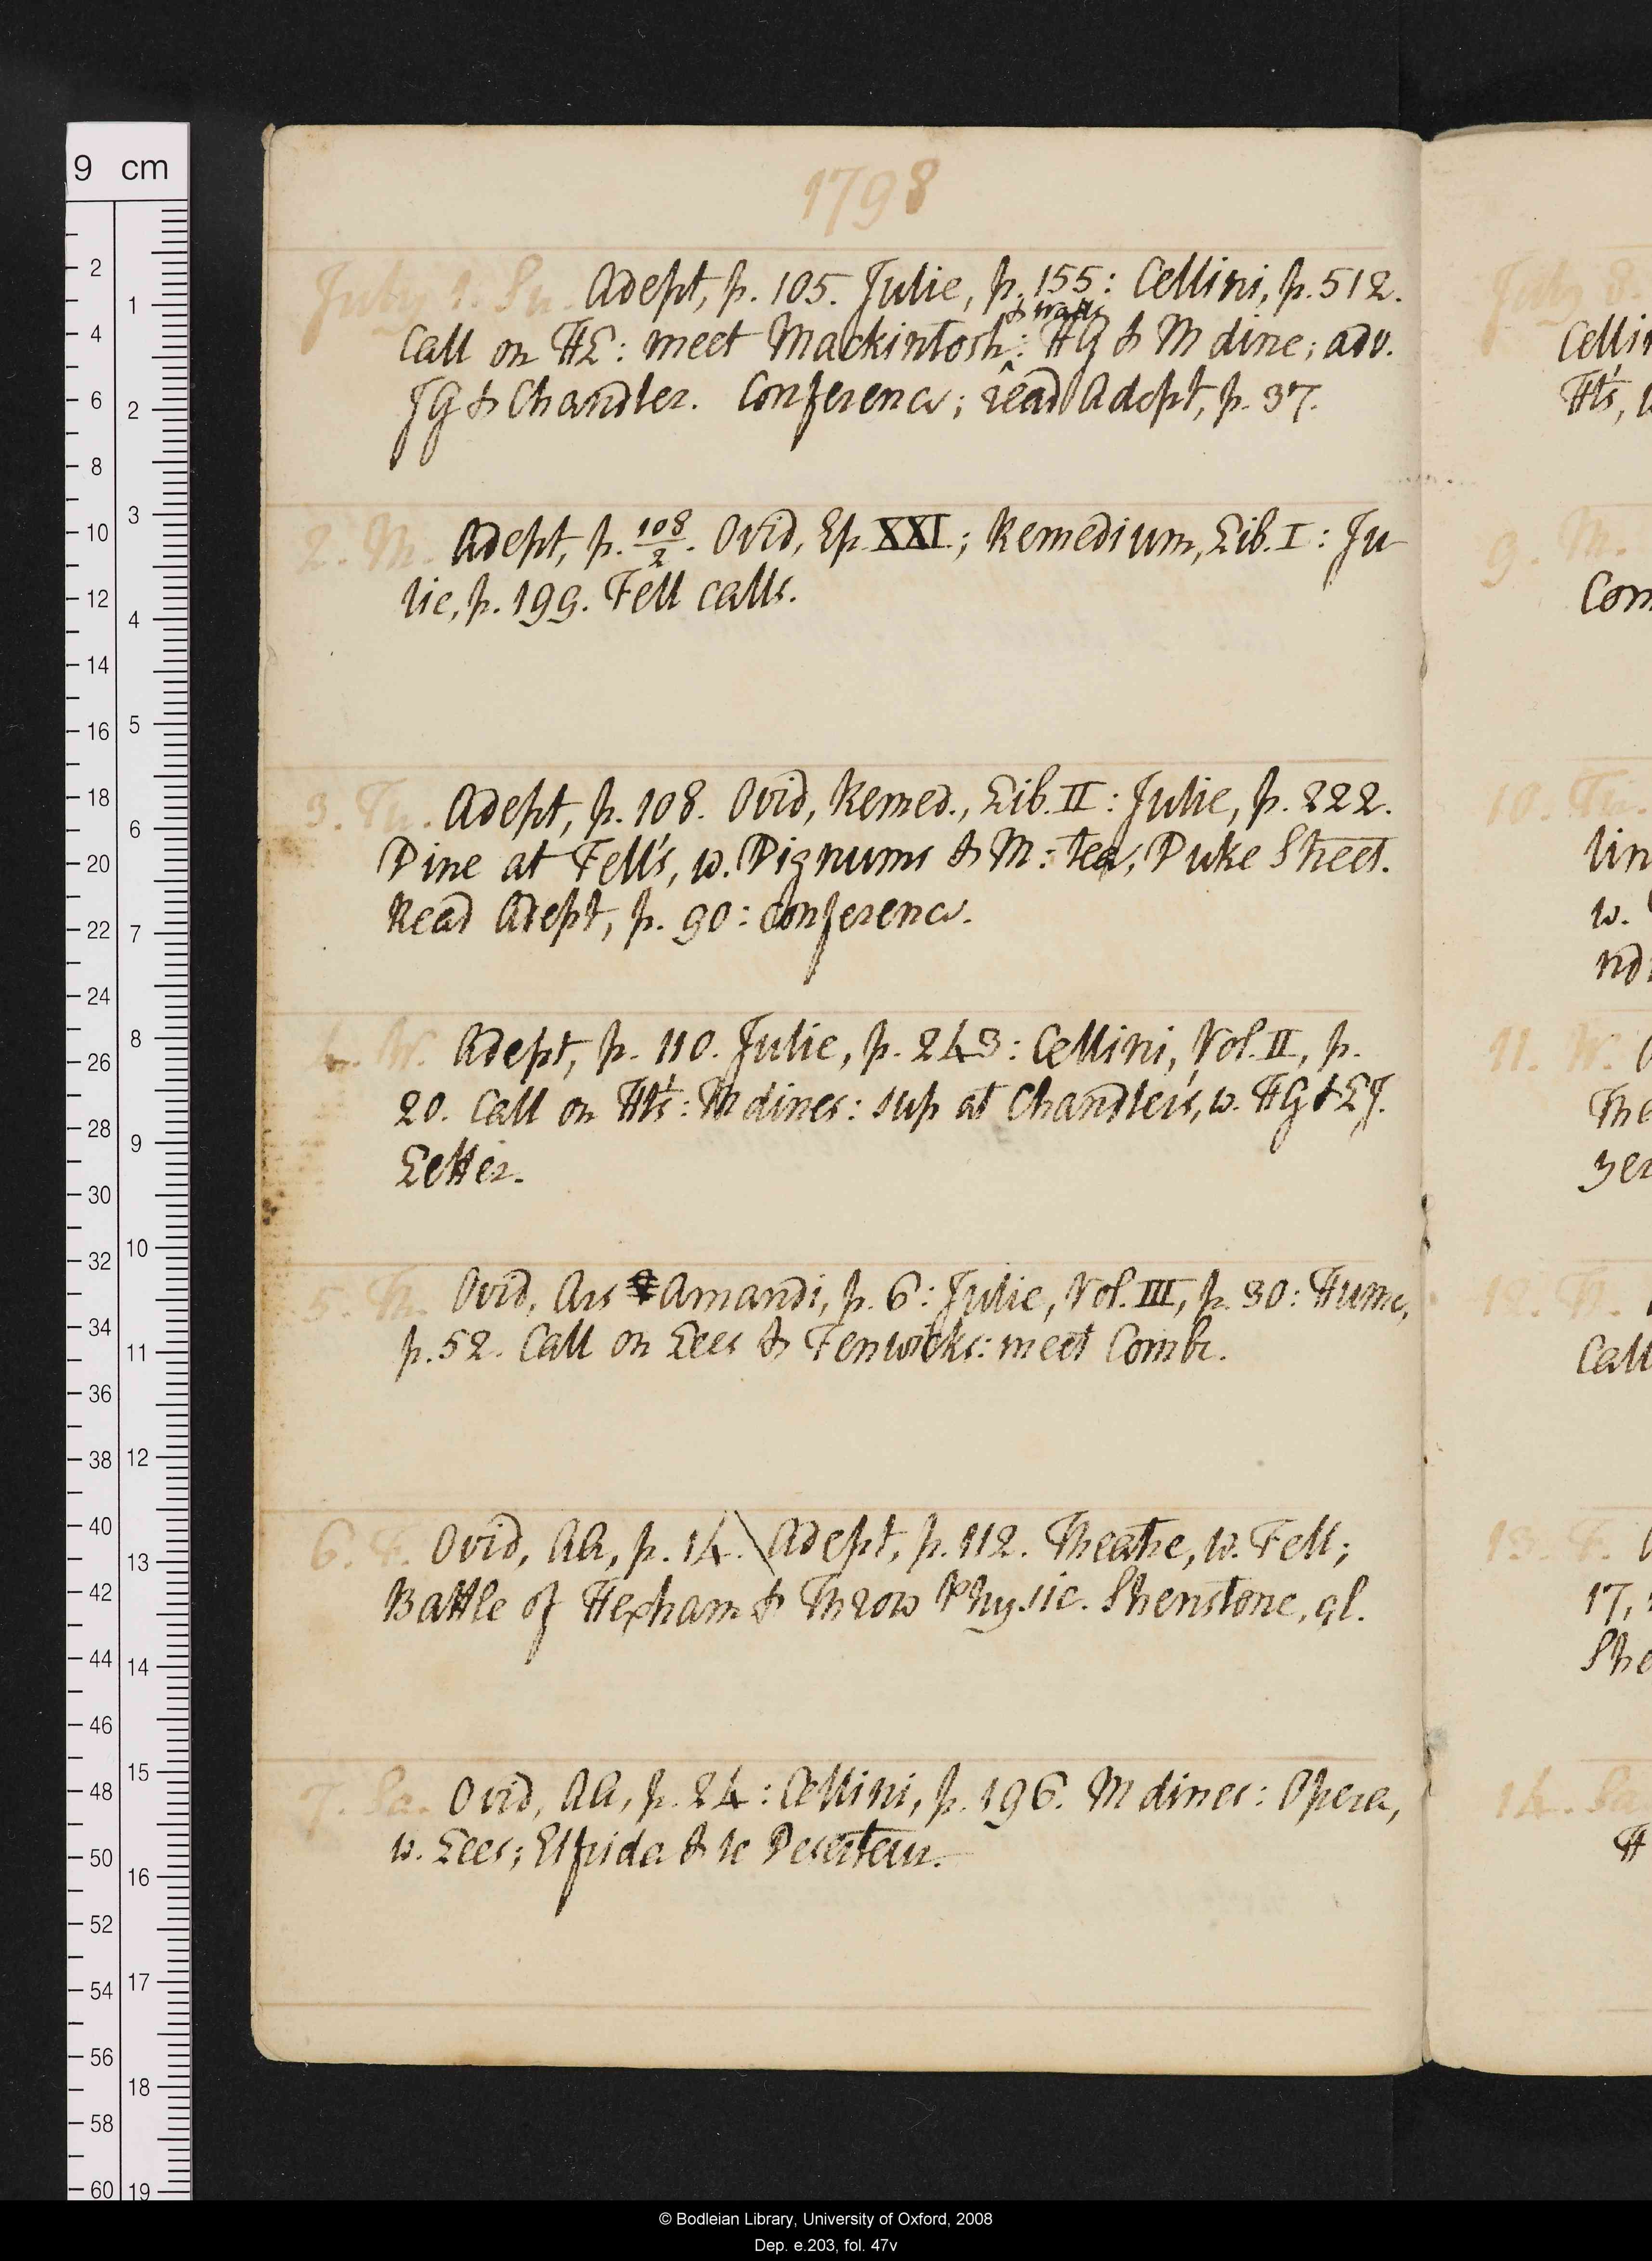 9 cm
1798
July 1. Su. Adept, p. 105. Julie, p. 155: Cellini, p. 512.
& Watts
Call on HL: meet Mackintosh: HG & M dine; adv.
JG & Chandler. Conference; read Adept, p. 37.
2. M. Adept, p. 108/2. Ovid, Ep. XXI.; Remedium, Lib. I: Ju-
lie, p. 199. Fell calls.
3. Tu. Adept, p. 108. Ovid, Remed., Lib. II: Julie, p. 222.
Dine at Fell's, w. Dignums & M: tea, Duke Street.
Read Adept, p. 90: conference.
4. W. Adept, p. 110. Julie, p. 243: Cellini, Vol. II, p.
20. Call on Ht's: M dines: sup at Chandler's, w. HG & LJ.
Letter.
5. Th. Ovid, Ars Amandi, p. 6: Julie, Vol. III, p. 30: Hume,
p. 52. Call on Lees & Fenwicks: meet Combe.
6. F. Ovid, AA, p. 14. \ Adept, p. 112. Theatre, w. Fell;
Battle of Hexham & Throw Physic. Shenstone, ql.
7. Sa. Ovid, AA, p. 24: Cellini, p. 196. M dines: Opera,
w. Lees; Elfrida & le Deserteur.
July 8.
Cellin
Ht's,
9. M.
Com
10. Tu.
lin
w.
nd
11. W.
The
ger
Th.
Call
13. F.
17,
She
14. Sa
H
© Bodleian Library, University of Oxford, 2008
Dep. e.203, fol. 47v